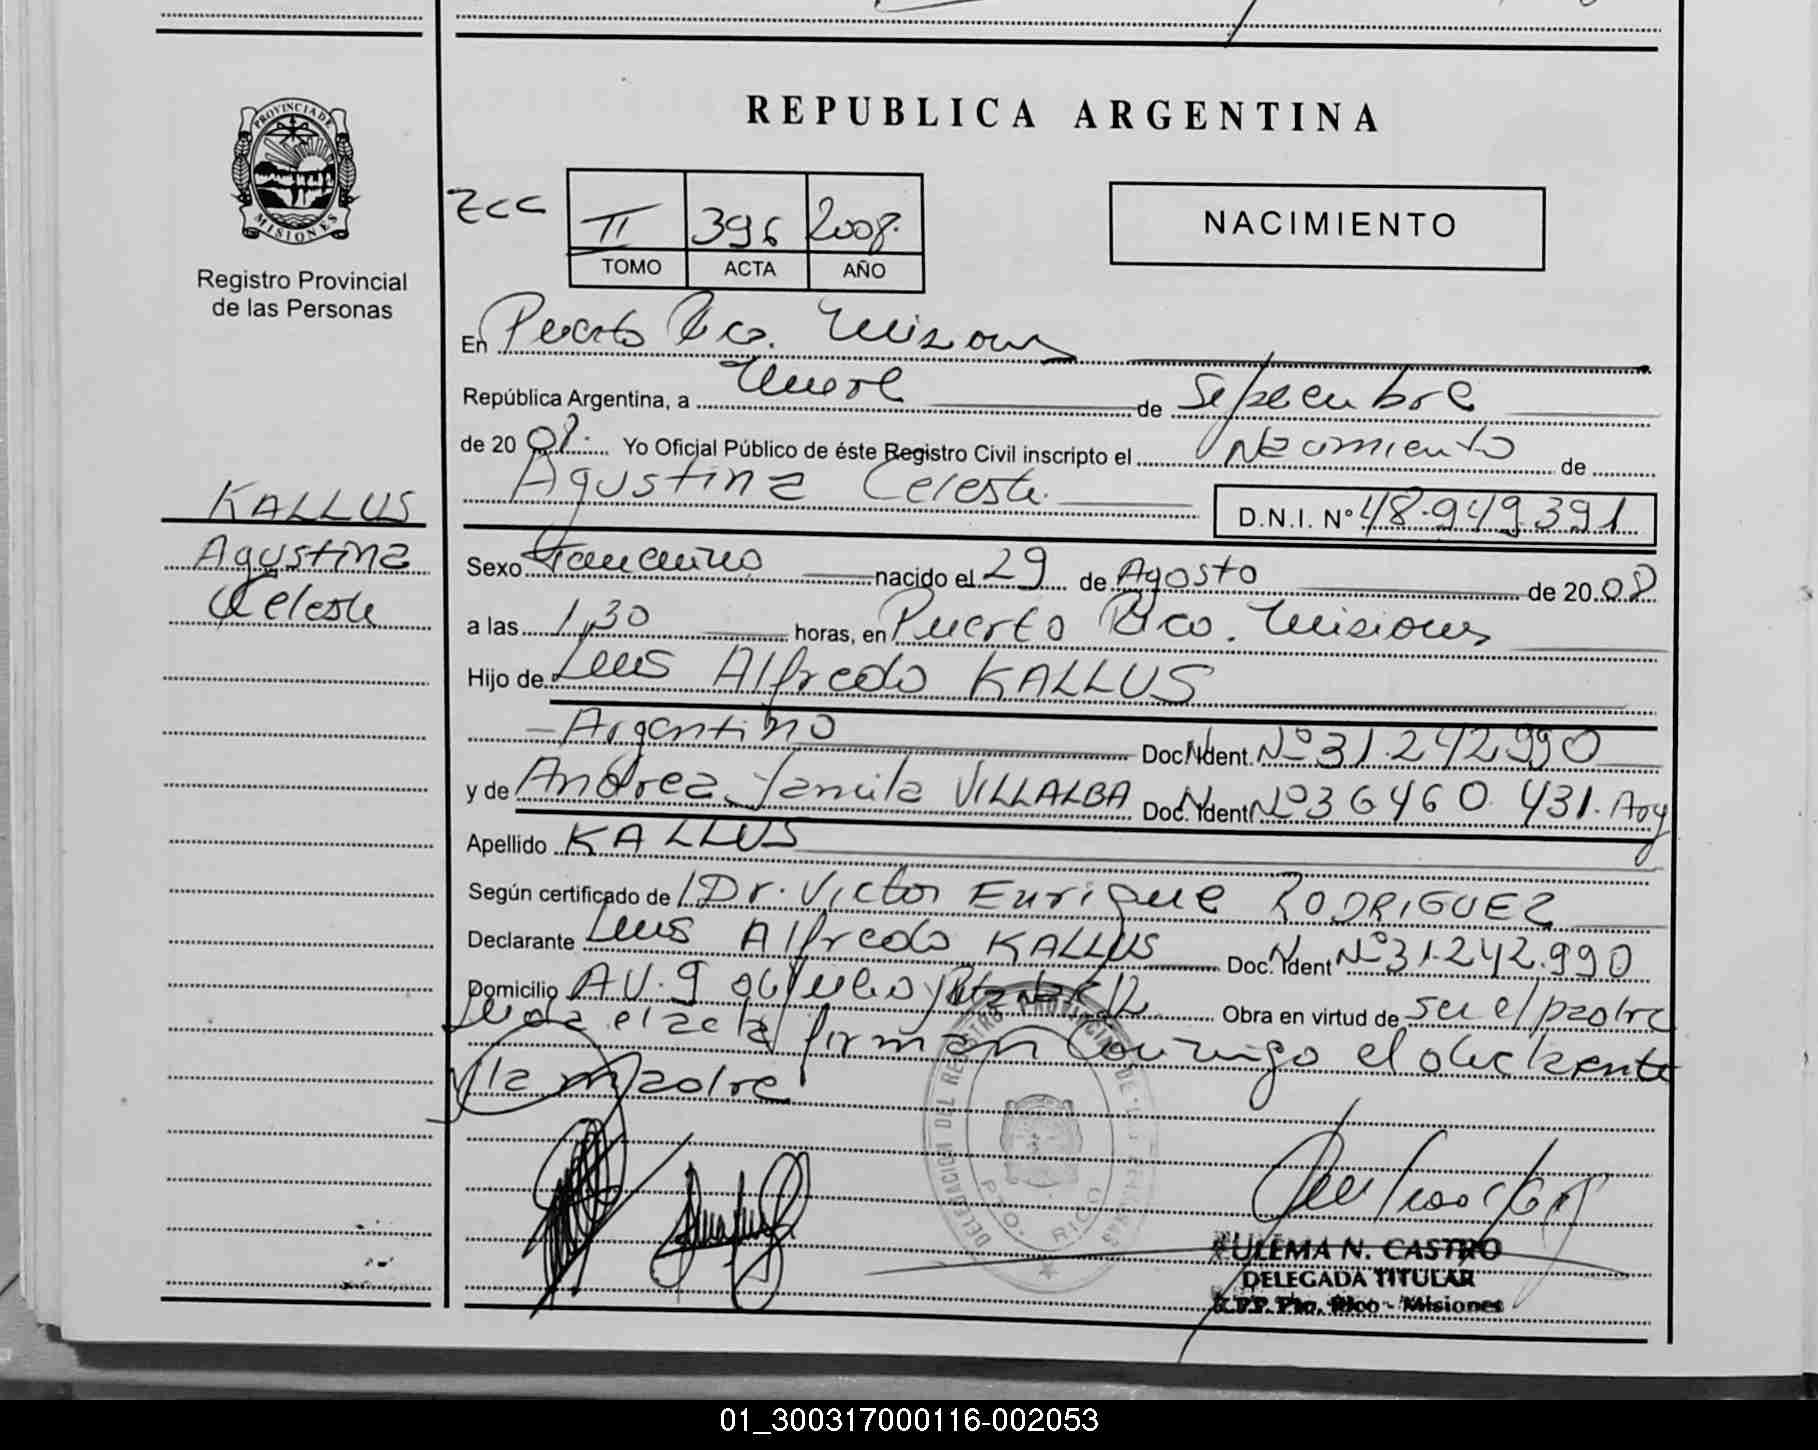 PROVINCIA DE
MISIONES
Registro Provincial
de las Personas
KALLUS
Agustina
Celeste
REPUBLICA ARGENTINA
II 396 2008.
TOMO ACTA AÑO
NACIMIENTO
En Puerto Rico. Misiones
República Argentina, a nueve de Septiembre
de 20 08. Yo Oficial Público de éste Registro Civil inscripto el Nacimiento de
Agustina Celeste.
D.N.I. Nº 48.949.391
Sexo Femenino nacido el 29 de Agosto de 20 08
a las 1,30 horas, en Puerto Rico. Misiones
Hijo de Luis Alfredo KALLUS
Argentino Doc. Ident. Nº 31.242.990
y de Andrea Yamila VILLALBA Doc. Ident Nº 36460.431. Arg
Apellido KALLUS
Según certificado de Dr. Victor Enrique RODRIGUEZ
Declarante Luis Alfredo KALLUS Doc. Ident Nº 31.242.990
Domicilio AV. 9 de Julio y Obra en virtud de ser el padre
Leida el acta firman conmigo el declarante
y la madre
DELEGACION DEL REGISTRO PROVINCIAL DE LAS PERSONAS
PTO. RICO
ZULEMA N. CASTRO
DELEGADA TITULAR
R.P.P. Pto. Rico - Misiones
01_300317000116-002053